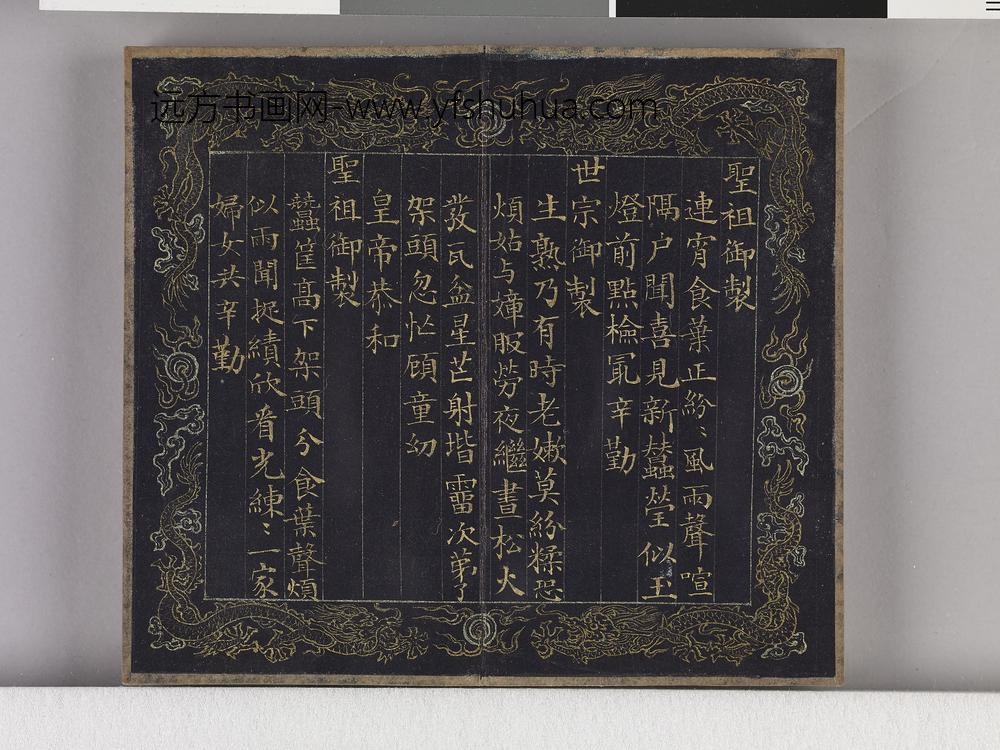 远方书画网-www.yfshuhua.com
聖祖御製
連宵食葉正紛〻風雨聲喧
隔户聞喜見新蠶瑩似玉
燈前點檢冣辛勤
世宗御製
生熟乃有時老嫩莫紛糅恐
煩姑与嫜服勞夜繼晝松火
發瓦盆星芒射堦霤次第了
架頭忽忙顧童幼
皇帝恭和
聖祖御製
蠶筐高下架頭分食葉聲煩
似雨聞捉績欣看光練〻一家
婦女共辛勤